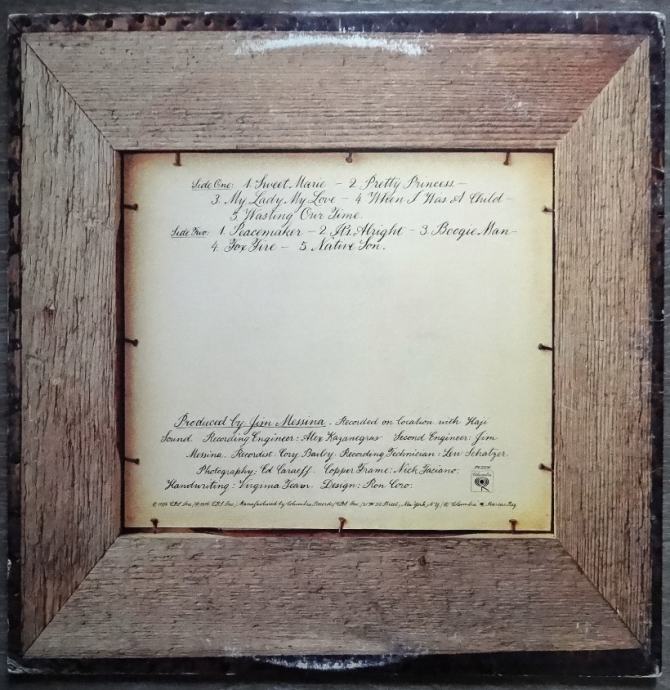 Side One: 1. Sweet Marie - 2. Pretty Princess -
3. My Lady, My Love - 4. When I Was A Child -
5. Wasting Our Time.
Side Two: 1. Peacemaker - 2. It's Alright - 3. Boogie Man -
4. Fox Fire - 5. Native Son.
Produced by Jim Messina. Recorded on location with Haji
Sound. Recording Engineer: Alex Kazanegras Second Engineer: Jim
Messina. Recordist: Cory Bailey Recording Technician: Lew Schatzer.
Photography: Ed Caraeff. Copper Frame: Nick Faciano.
Handwriting: Virginia Team. Design: Ron Coro.
Columbia
CBS Inc. / Manufactured by Columbia Records / CBS Inc. / 51 W. 52 Street, New York, N.Y. / ® Columbia, Marcas Reg.